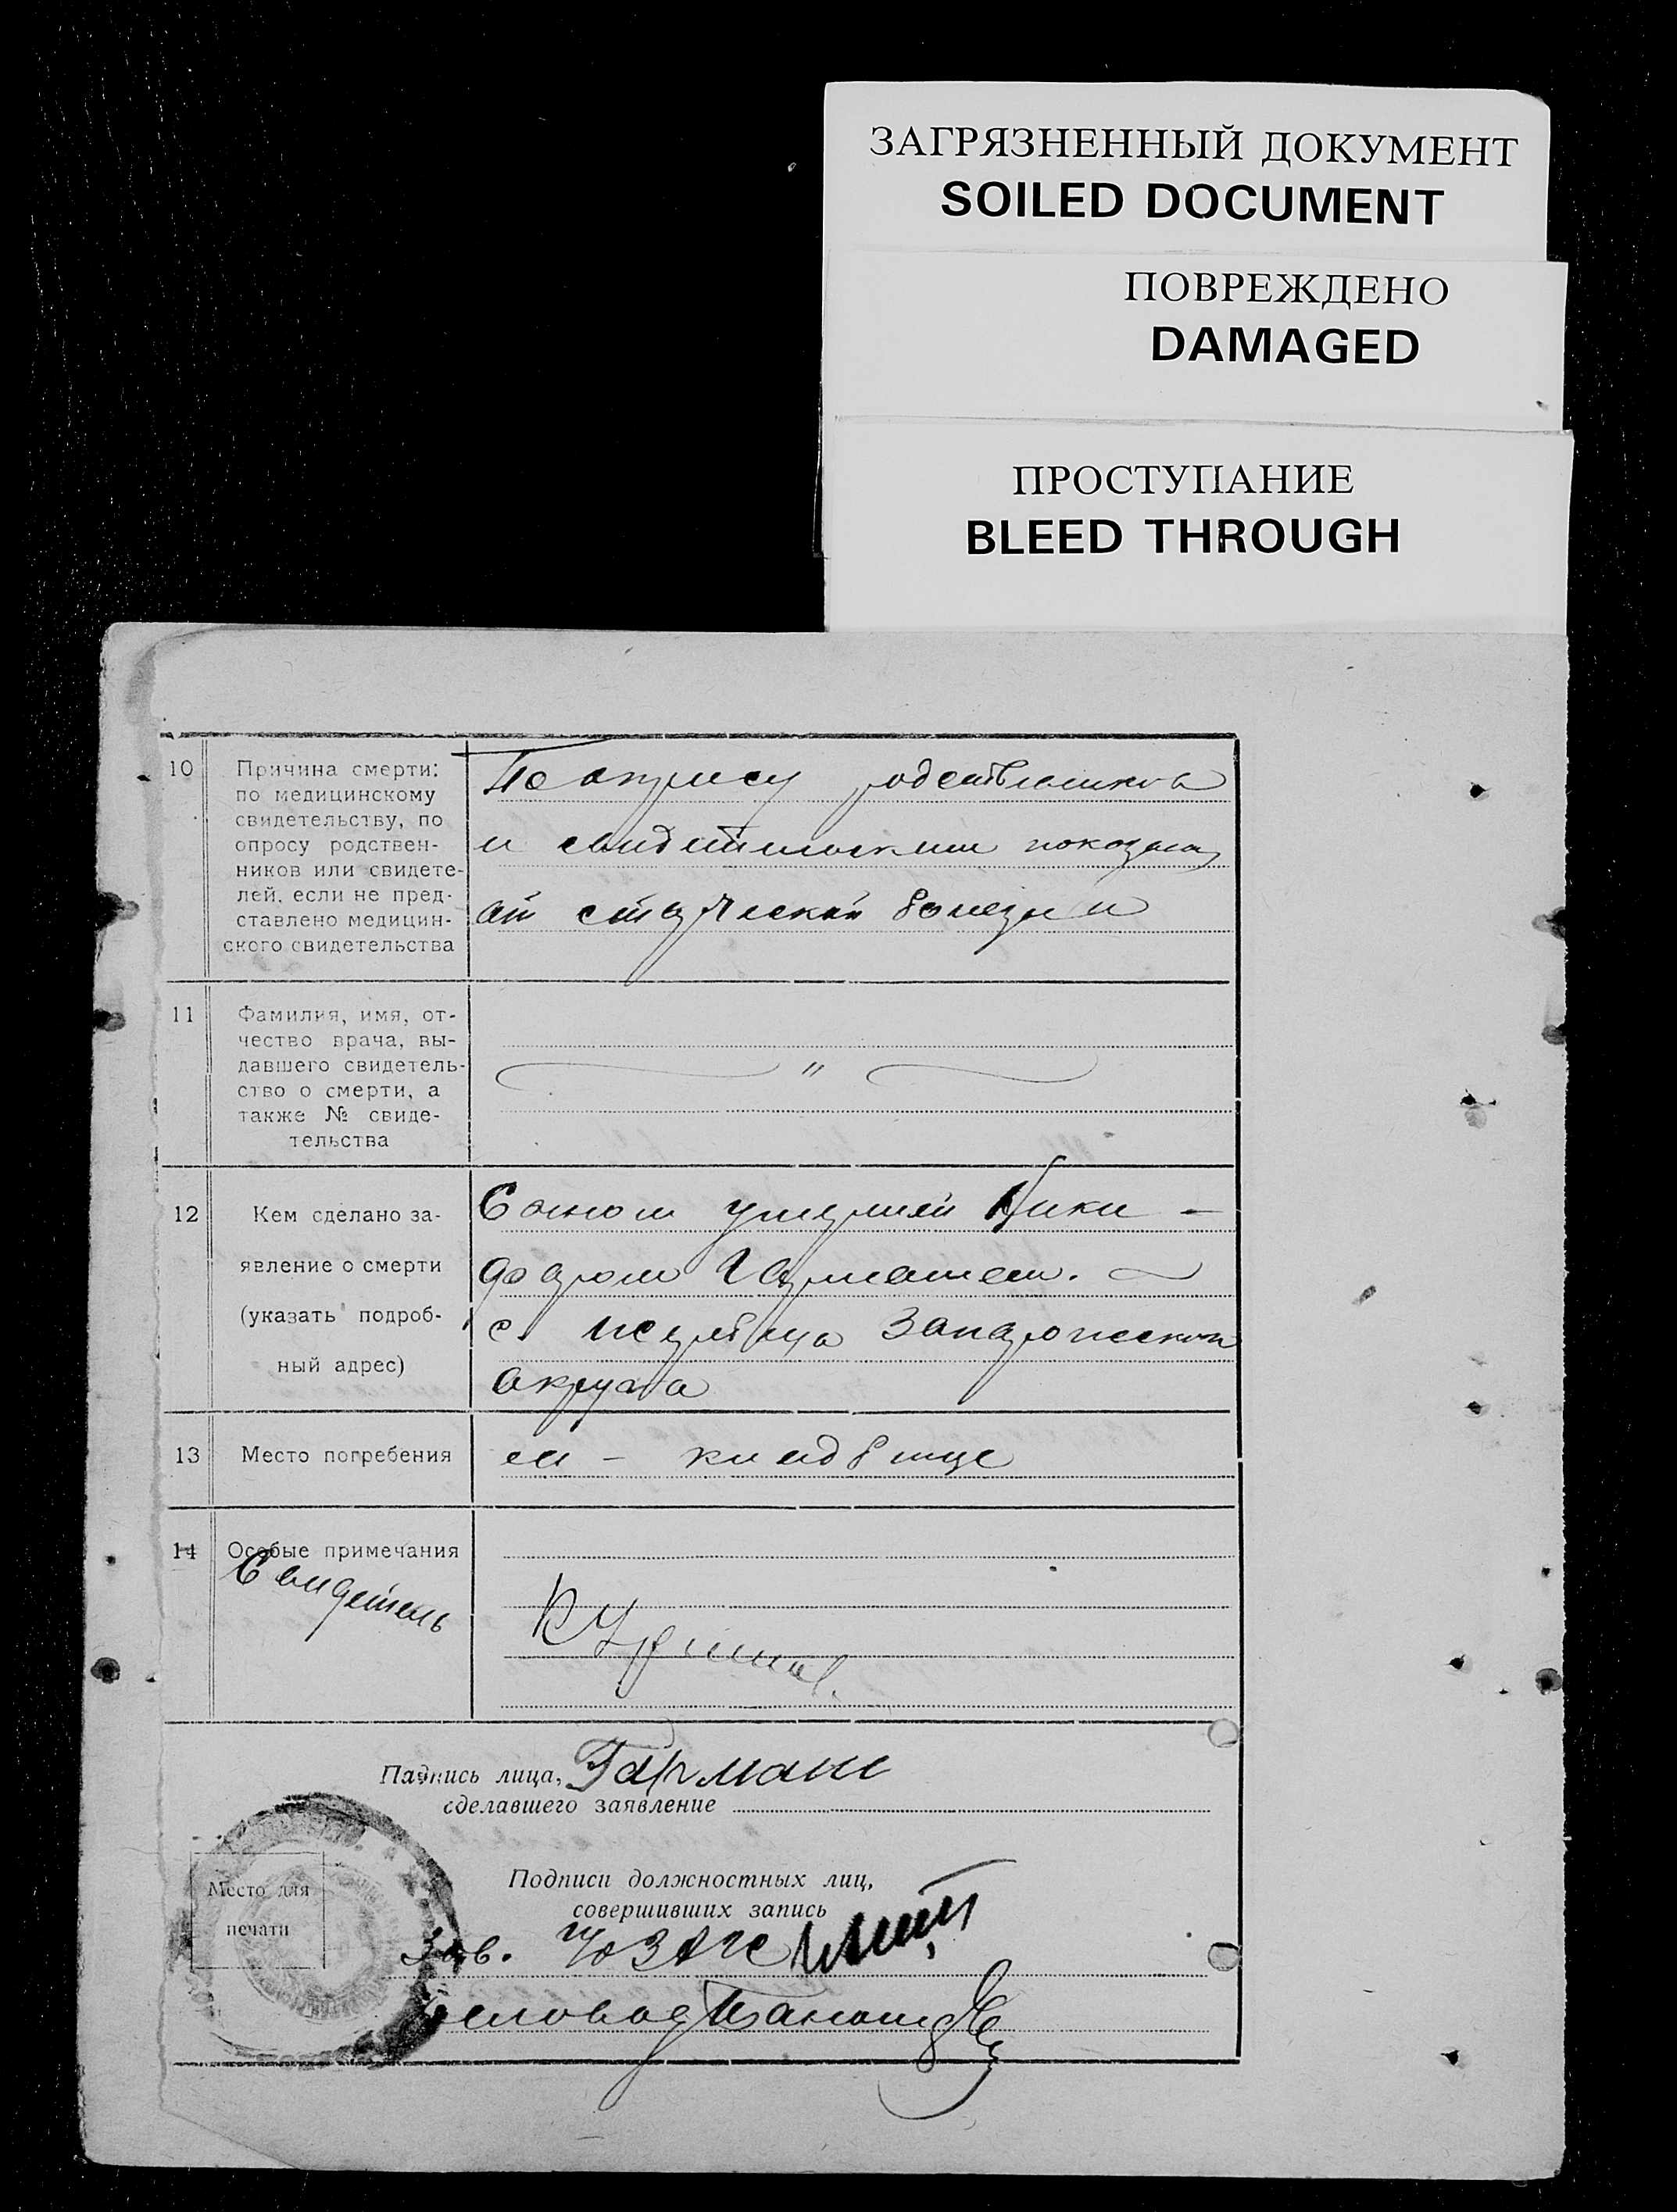 ЗАГРЯЗНЕННЫЙ ДОКУМЕНТ
SOILED DOCUMENT
ПОВРЕЖДЕНО
DAMAGED
ПРОСТУПАНИЕ
BLEED THROUGH
10
Причина смерти:
по медицинскому
свидетельству, по
опросу родствен-
ников или свидете-
лей, если не пред-
ставлено медицин-
ского свидетельства
По опросу родственников
и свидетельским показан
от старческой болезни
11
Фамилия, имя, от-
чество врача, вы-
давшего свидетель-
ство о смерти, а
также № свиде-
тельства
〃
12
Кем сделано за-
явление о смерти
(указать подроб-
ный адрес)
Сыном умершей Ники-
фором Гармашем.
с. Запорожского
округа
13
Место погребения
кладбище
14
Особые примечания
Свидетель
Подпись лица,
сделавшего заявление
Гармаш
Место для
печати
Подписи должностных лиц,
совершивших запись
Зав.
Деловод